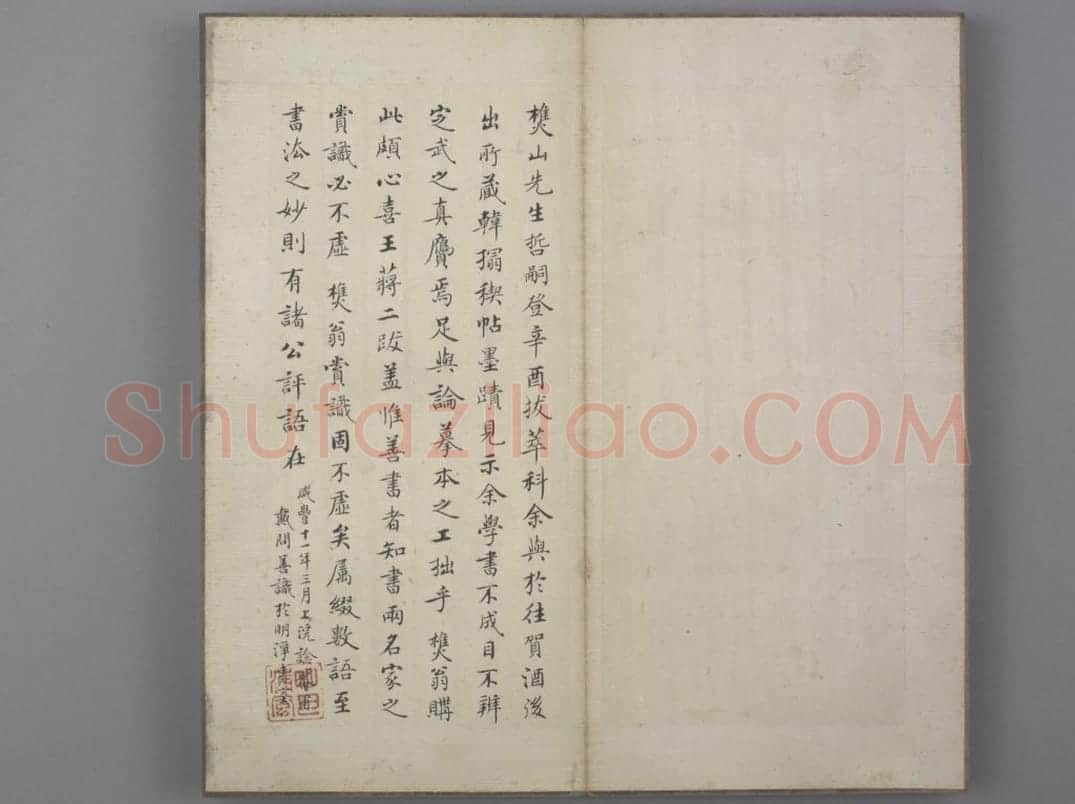 樵山先生哲嗣登辛酉拔萃科余與於往賀酒後
出所藏韓搨稧帖墨蹟見示余學書不成目不辨
定武之真贗焉足與論摹本之工拙乎 樵翁購
此頗心喜王蔣二跋葢惟善書者知書兩名家之
賞識必不虛 樵翁賞識固不虛矣屬綴數語至
書法之妙則有諸公評語在
咸豐十一年三月上浣
戴問善識於明淨
Shufaziliao.COM